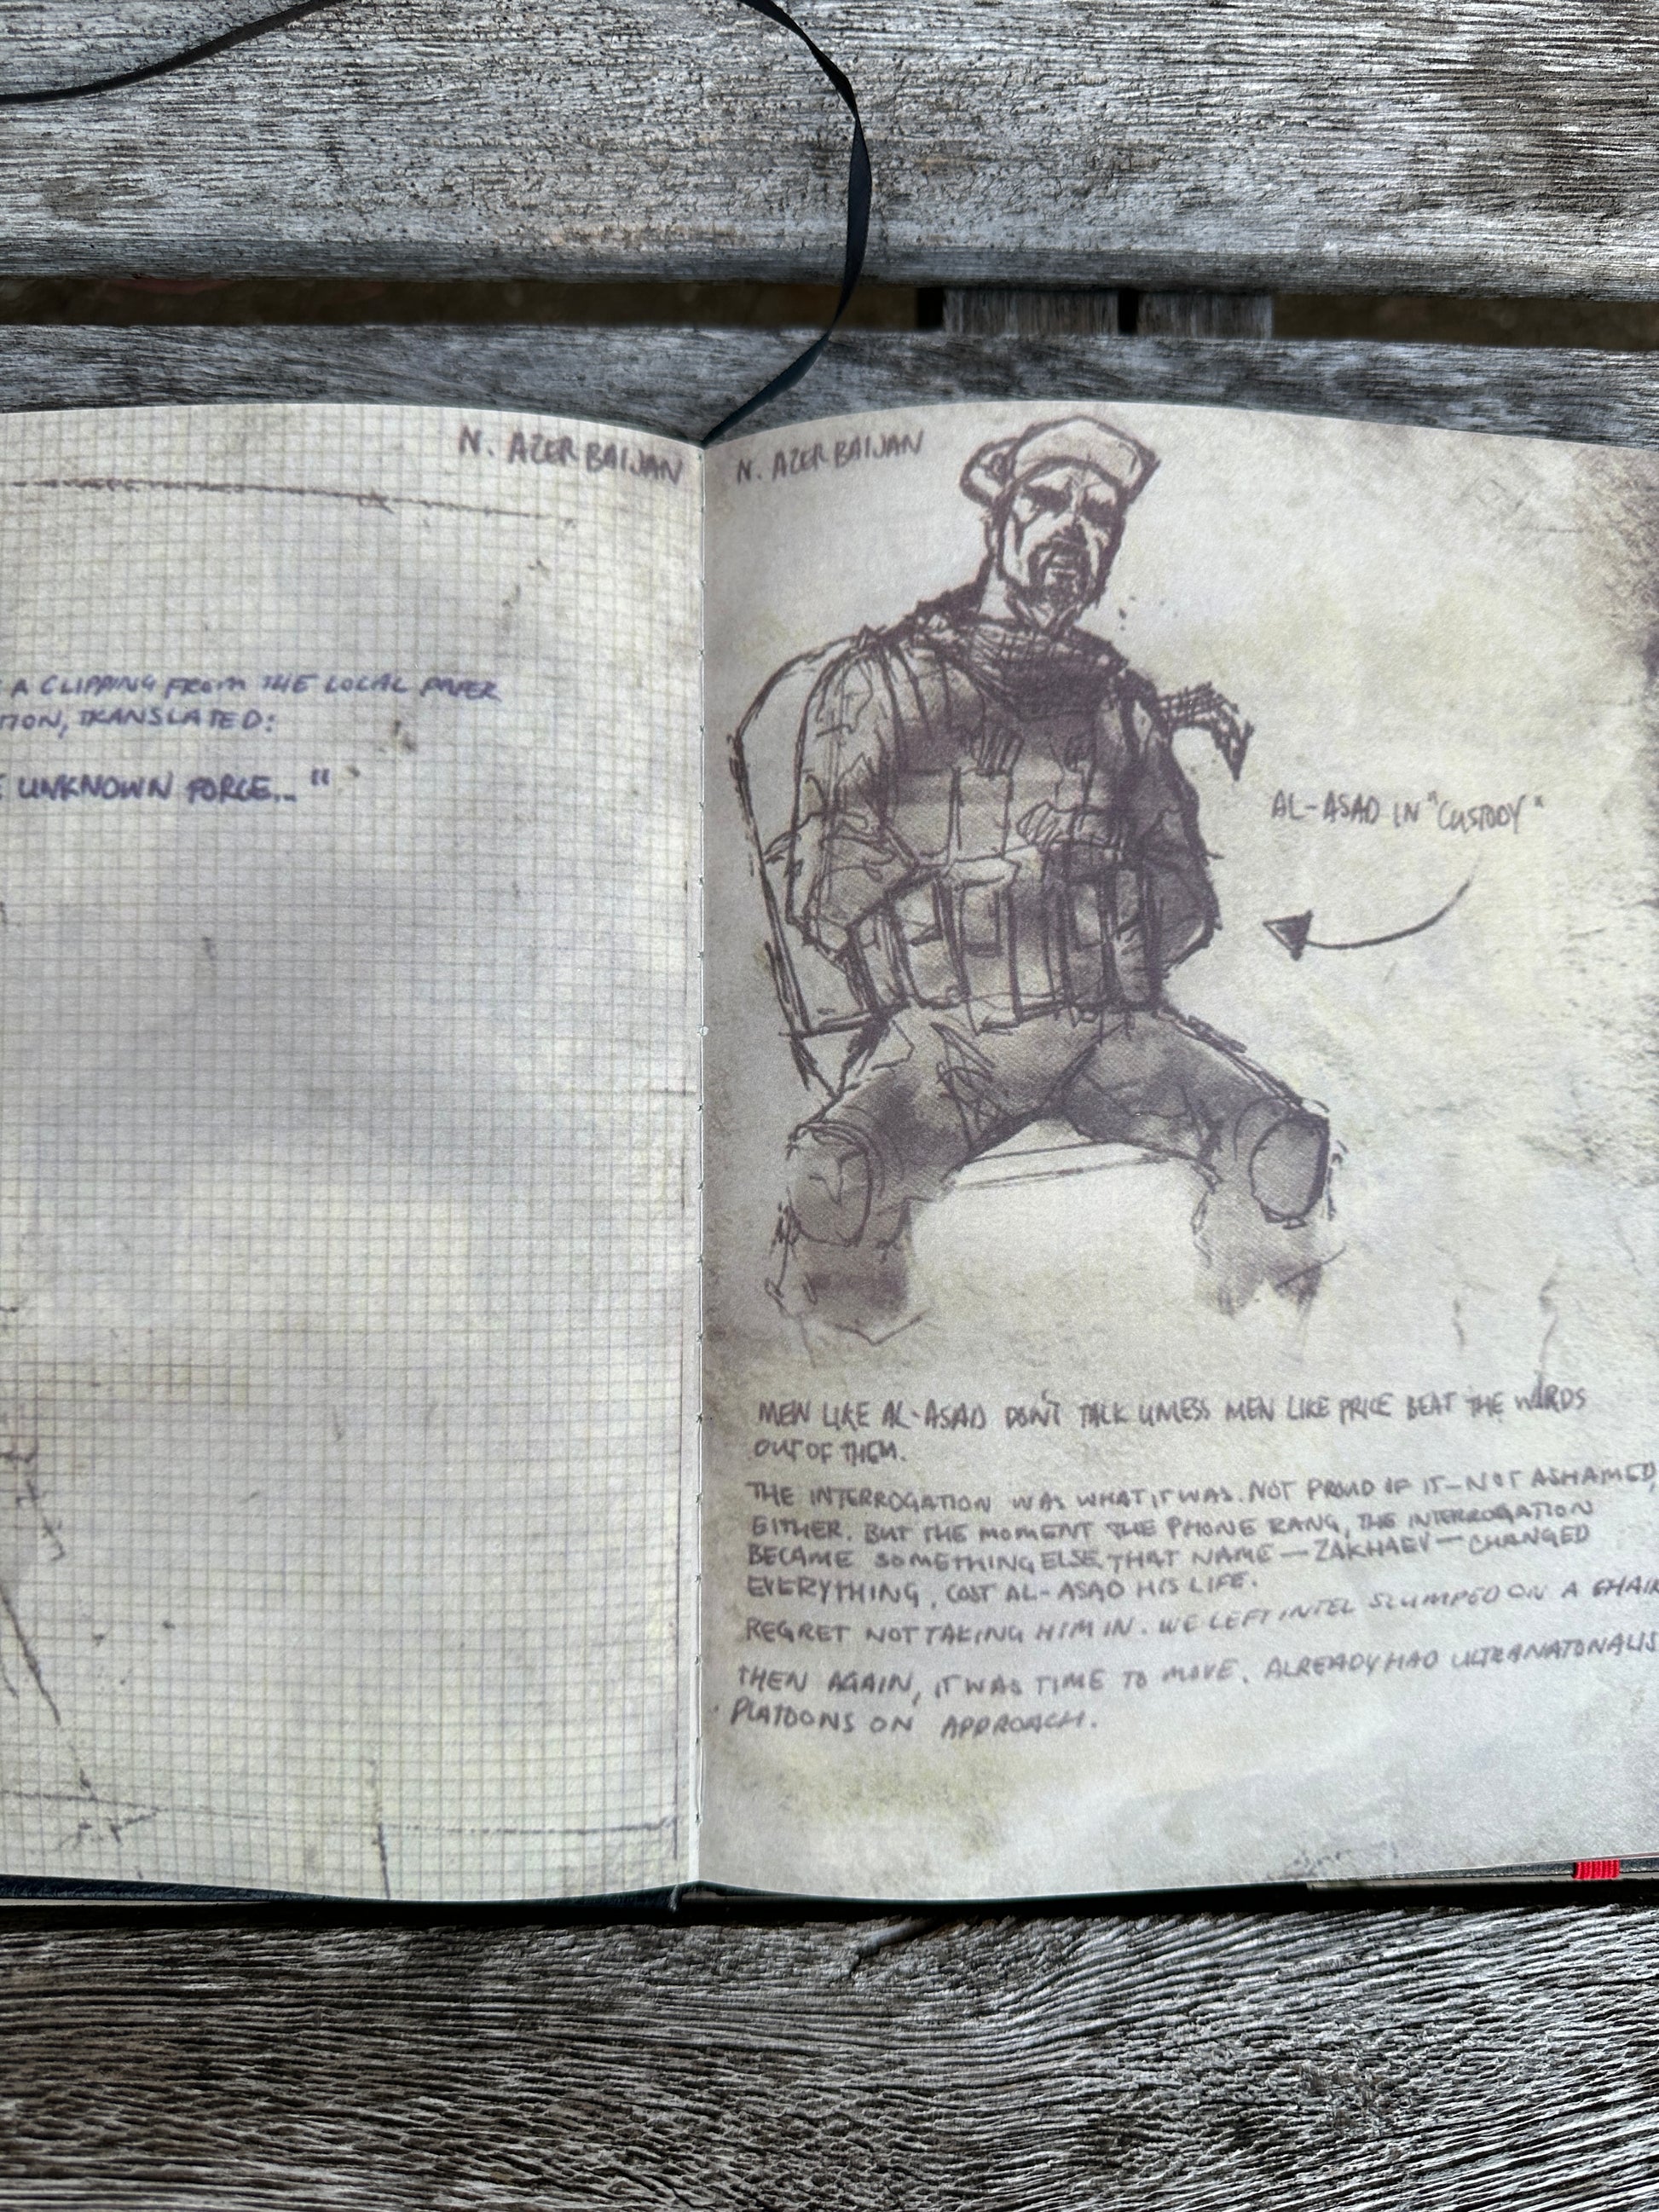 N. AZERBAIJAN
A CLIPPING FROM THE LOCAL PAPER
TION, TRANSLATED:
UNKNOWN FORCE..."
N. AZERBAIJAN
AL-ASAD IN "CUSTODY"
MEN LIKE AL-ASAD DON'T TALK UNLESS MEN LIKE PRICE BEAT THE WORDS
OUT OF THEM.
THE INTERROGATION WAS WHAT IT WAS. NOT PROUD OF IT—NOT ASHAMED,
EITHER. BUT THE MOMENT THE PHONE RANG, THE INTERROGATION
BECAME SOMETHING ELSE. THAT NAME—ZAKHAEV—CHANGED
EVERYTHING, COST AL-ASAD HIS LIFE.
REGRET NOT TAKING HIM IN. WE LEFT INTEL SLUMPED ON A CHAIR
THEN AGAIN, IT WAS TIME TO MOVE. ALREADY HAD ULTRANATONALIS
PLATOONS ON APPROACH.